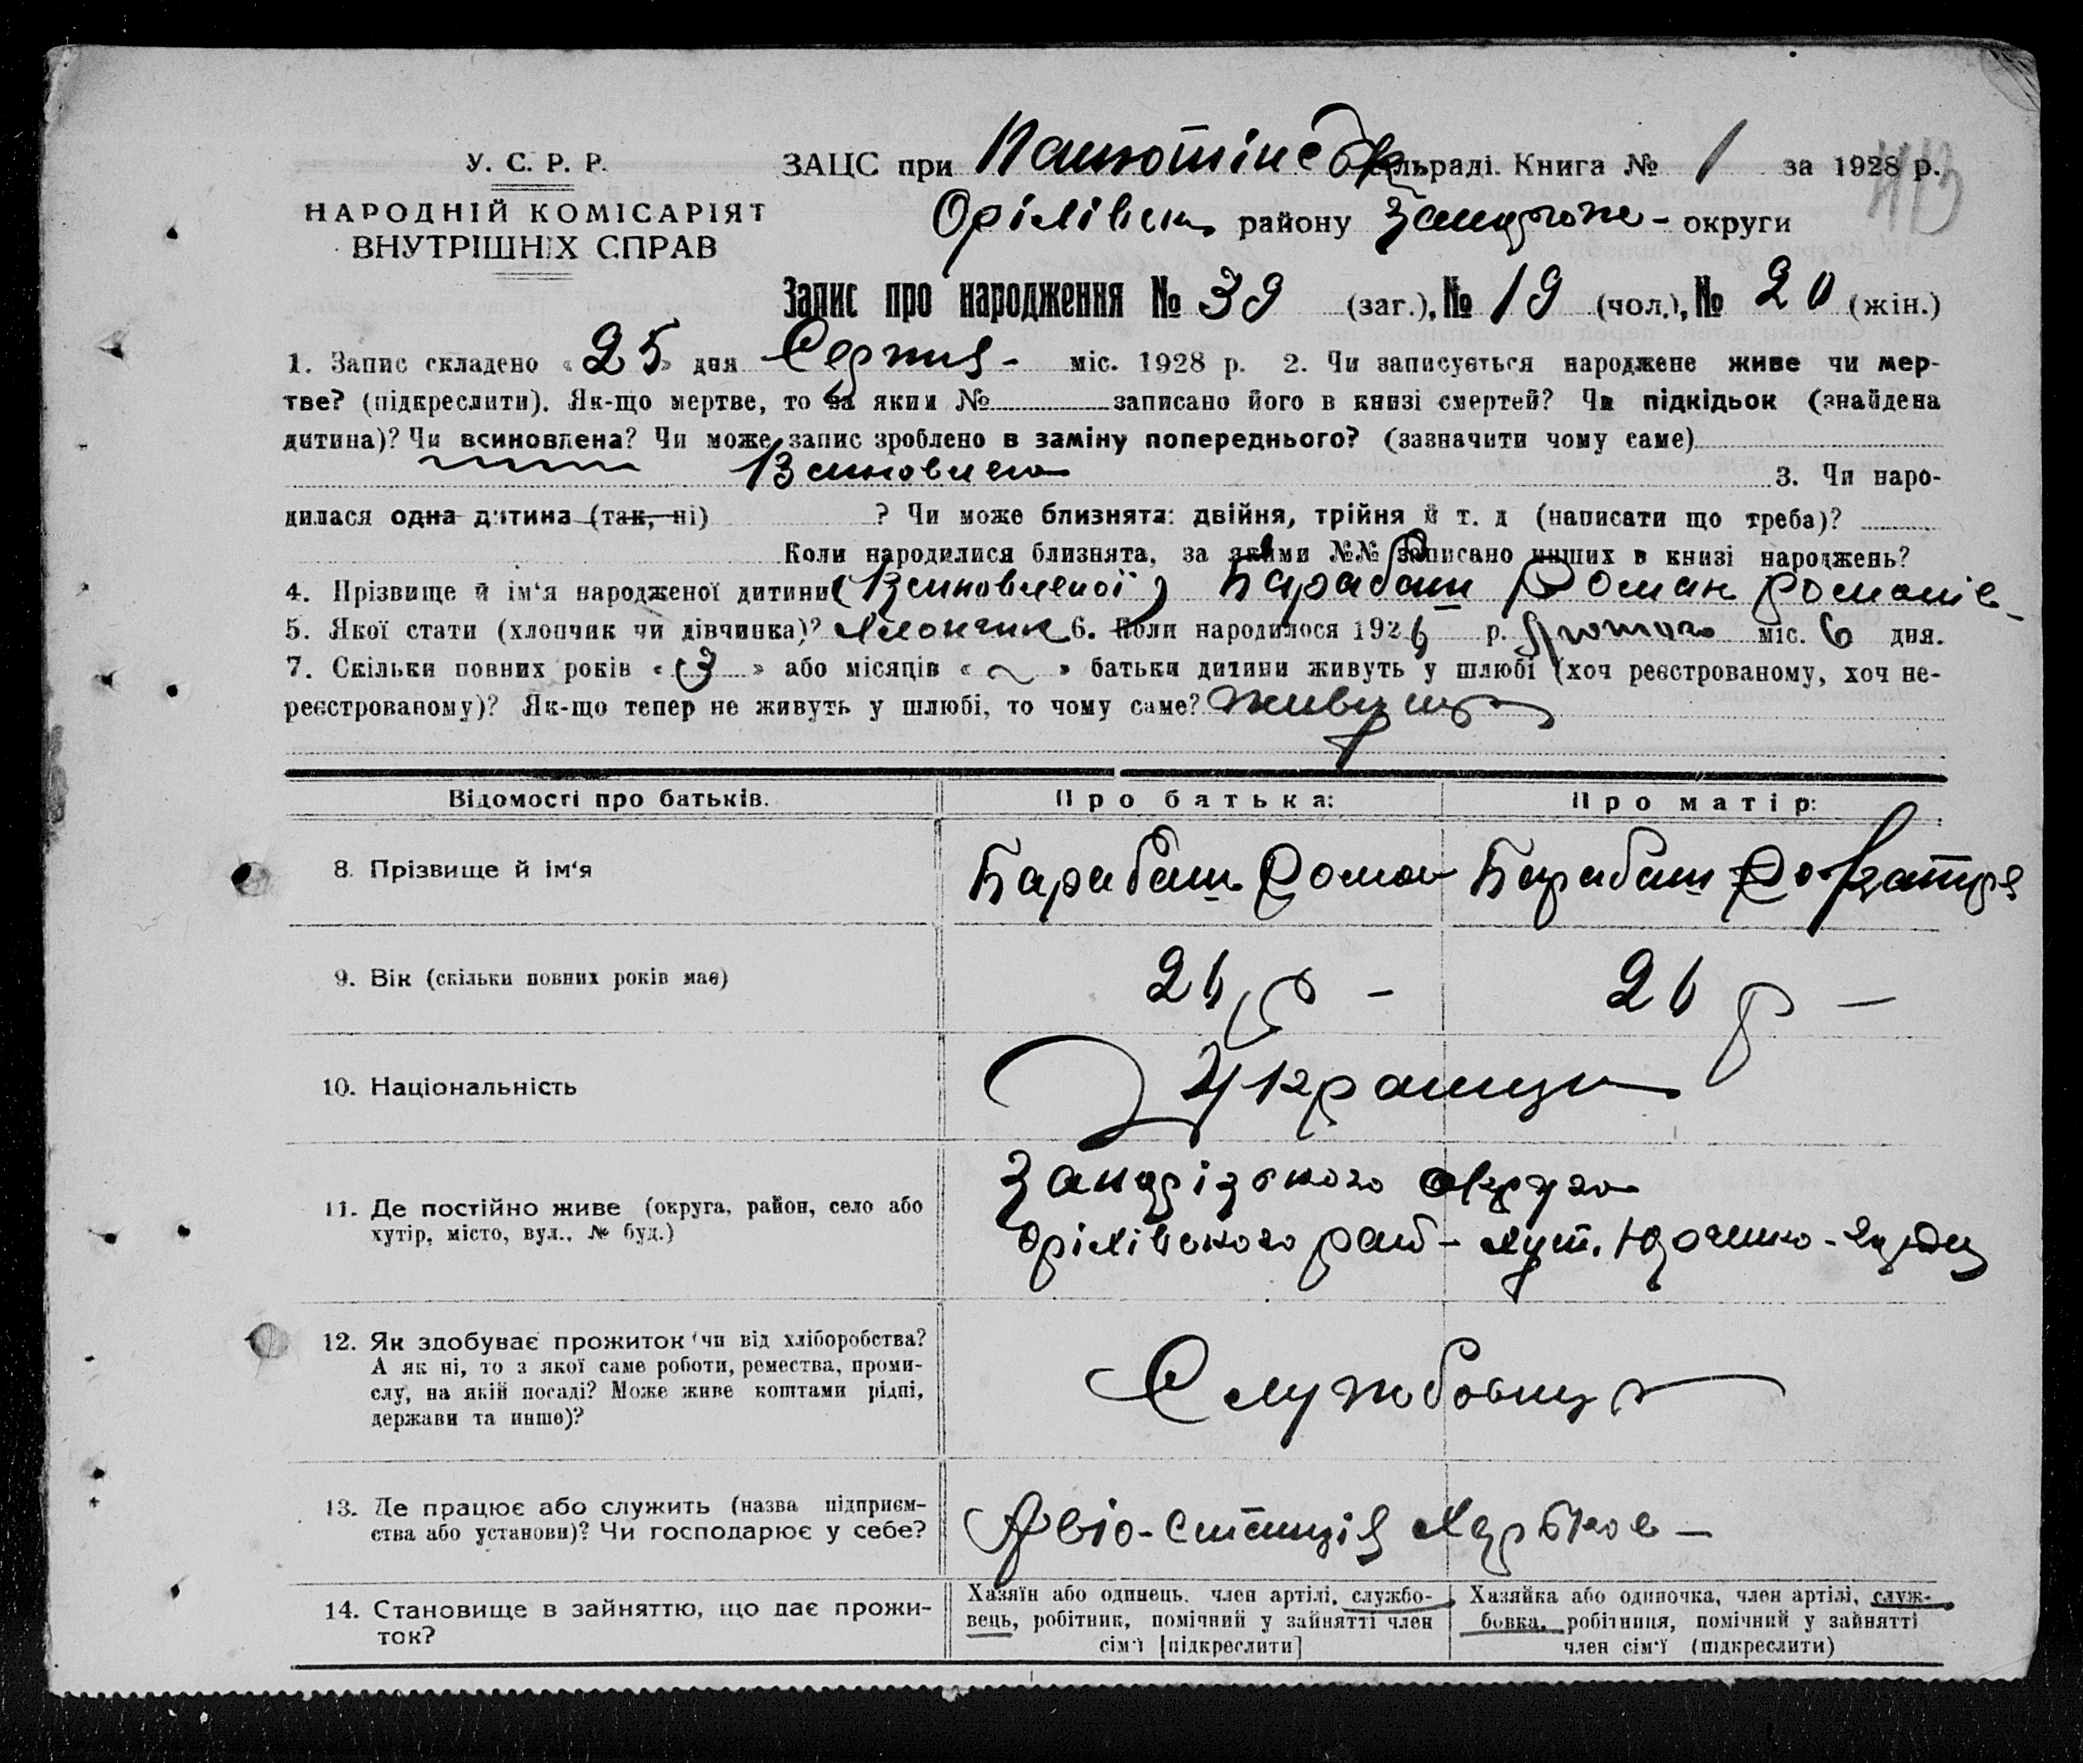 У. С. Р. Р.
НАРОДНІЙ КОМІСАРІЯТ
ВНУТРІШНІХ СПРАВ
ЗАЦС при сільраді. Книга № 1 за 1928 р.
району округи
Запис про народження № 39 (заг.), № 19 (чол.), № 20 (жін.)
1. Запис складено «25» дня Серпня - міс. 1928 р. 2. Чи записується народжене живе чи мер-
тве? (підкреслити). Як-що мертве, то за яким № записано його в книзі смертей? Чи підкідьок (знайдена
дитина)? Чи всиновлена? Чи може запис зроблено в заміну попереднього? (зазначити чому саме)
Всиновлено 3. Чи наро-
дилася одна дитина (так, ні) ? Чи може близнята: двійня, трійня й т. д (написати що треба)?
Коли народилися близнята, за якими №№ записано инших в книзі народжень?
4. Прізвище й ім'я народженої дитини (Всиновленої) Барабаш Роман Романів
5. Якої стати (хлопчик чи дівчинка)? Хлопчик 6. Коли народилося 192 р. Лютого міс. 6 дня.
7. Скільки повних років «3» або місяців « ~ » батьки дитини живуть у шлюбі (хоч реєстрованому, хоч не-
реєстрованому)? Як-що тепер не живуть у шлюбі, то чому саме? Живуть
Відомості про батьків. Про батька: Про матір:
8. Прізвище й ім'я Барабаш Роман Барабаш
9. Вік (скільки повних років має) 26 р - 26 р -
10. Національність Українці
11. Де постійно живе (округа, район, село або
хутір, місто, вул., № буд.)
Запорізького округа
12. Як здобуває прожиток (чи від хліборобства?
А як ні, то з якої саме роботи, ремества, проми-
слу, на якій посаді? Може живе коштами рідні,
держави та инше)?
Службовці
13. Де працює або служить (назва підприєм-
ства або установи)? Чи господарює у себе?
Авіо-станція Харьков -
14. Становище в зайняттю, що дає прожи-
ток?
Хазяїн або одинець, член артілі, службо-
вець, робітник, помічний у зайнятті член
сім'ї [підкреслити]
Хазяйка або одиночка, член артілі, служ-
бовка, робітниця, помічний у зайнятті
член сім'ї (підкреслити)